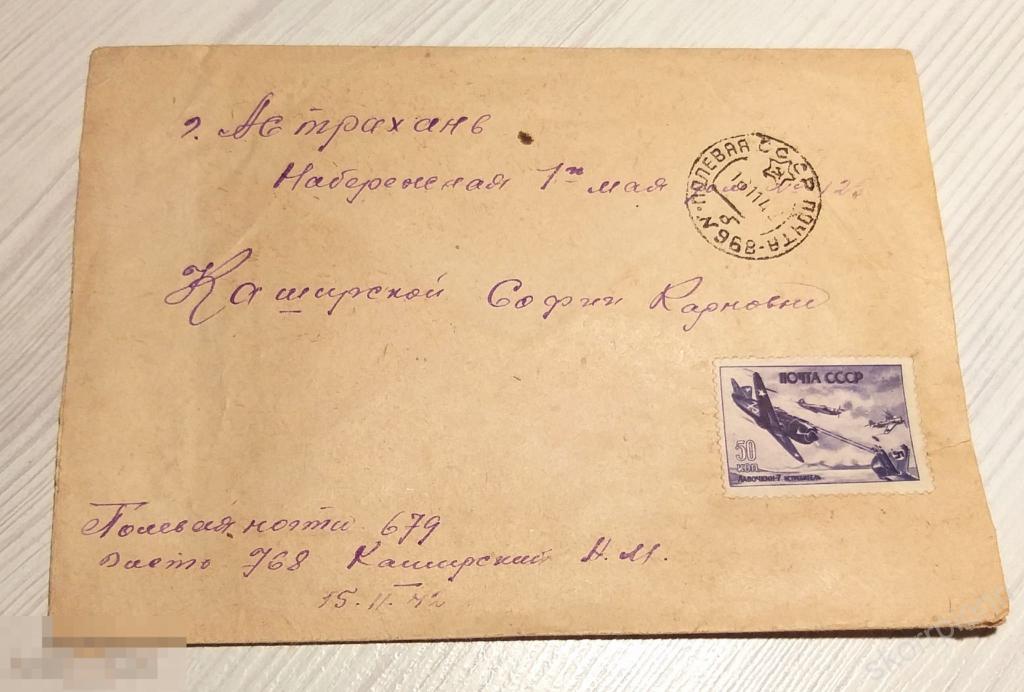 г. Астрахань
Набережная 1го мая дом № 125
Каширской Софии Карповне
ПОЛЕВАЯ ПОЧТА-896
СССР
ПОЧТА СССР
50
КОП
ЛАВОЧКИН-7 ИСТРЕБИТЕЛЬ
Полевая почта 679
Часть 768 Каширский Н.М.
15.II.42